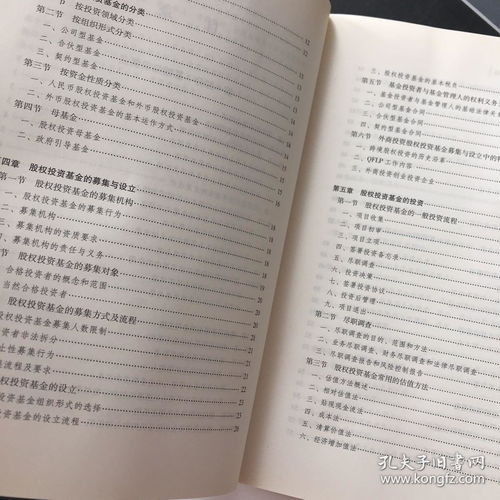 资基金的分类
节 按投资领域分类 12
第二节 按组织形式分类 12
一、公司型基金
二、合伙型基金
三、契约型基金
第三节 按资金性质分类
一、人民币股权投资基金和外币股权投资基金
二、外币股权投资基金的基本运作方式
第四节 母基金
一、股权投资母基金
二、政府引导基金
第四章 股权投资基金的募集与设立
第一节 股权投资基金的募集机构
一、股权投资基金的募集行为
二、募集机构
三、募集机构的资质要求
四、募集机构的责任与义务
节 股权投资基金的募集对象
合格投资者的概念和范围
当然合格投资者
股权投资基金的募集方式及流程
股权投资基金募集人数限制
资者非法拆分
止性募集行为
集流程及要求
权投资基金的设立
投资基金组织形式的选择 23
投资基金的设立流程 26
三、股权投资基金的基本税负
第五节 基金投资者与基金管理人的权利义务
一、基金投资者与基金管理人的基础法律关
二、公司型基金合同
三、合伙型基金合同
四、契约型基金合同
第六节 外商投资股权投资基金募集与设立中的特
一、跨境股权投资的历史沿革
二、QFLP工作内容
三、外商投资创业投资企业
第五章 股权投资基金的投资
第一节 股权投资基金的一般投资流程
一、项目收集
二、项目初审
三、项目立项
四、签署投资备忘录
五、尽职调查
六、投资决策
七、签署投资协议
八、投资后管理
九、项目退出
第二节 尽职调查
一、尽职调查的目的、范围和方法
二、业务尽职调查、财务尽职调查和法律尽职调查
三、尽职调查报告和风险控制报告
第三节 股权投资基金常用的估值方法
一、估值方法概述
二、相对估值法
三、贴现现金流法
四、成本法
五、清算价值法
六、经济增加值法
孔夫子旧书网
www.kongfz.com